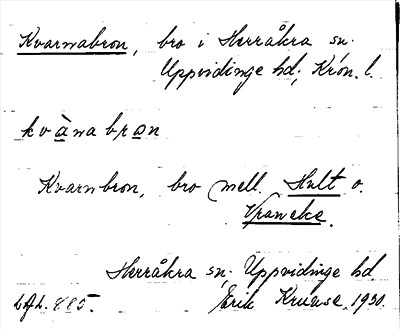 Kvarnabron, bro i Herråkra sn.
Uppvidinge hd; Kron. l.
kvànabrən
Kvarnbron, bro mell. Hult o.
Vraneke.
Herråkra sn; Uppvidinge hd.
Erik Kruuse. 1930.